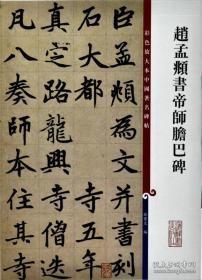 趙孟頫書帝師膽巴碑
彩色放大本中國著名碑帖
臣孟頫為文并書刻
石大都寺五年
真定路龍興寺僧迭
凡八奏師本住其寺